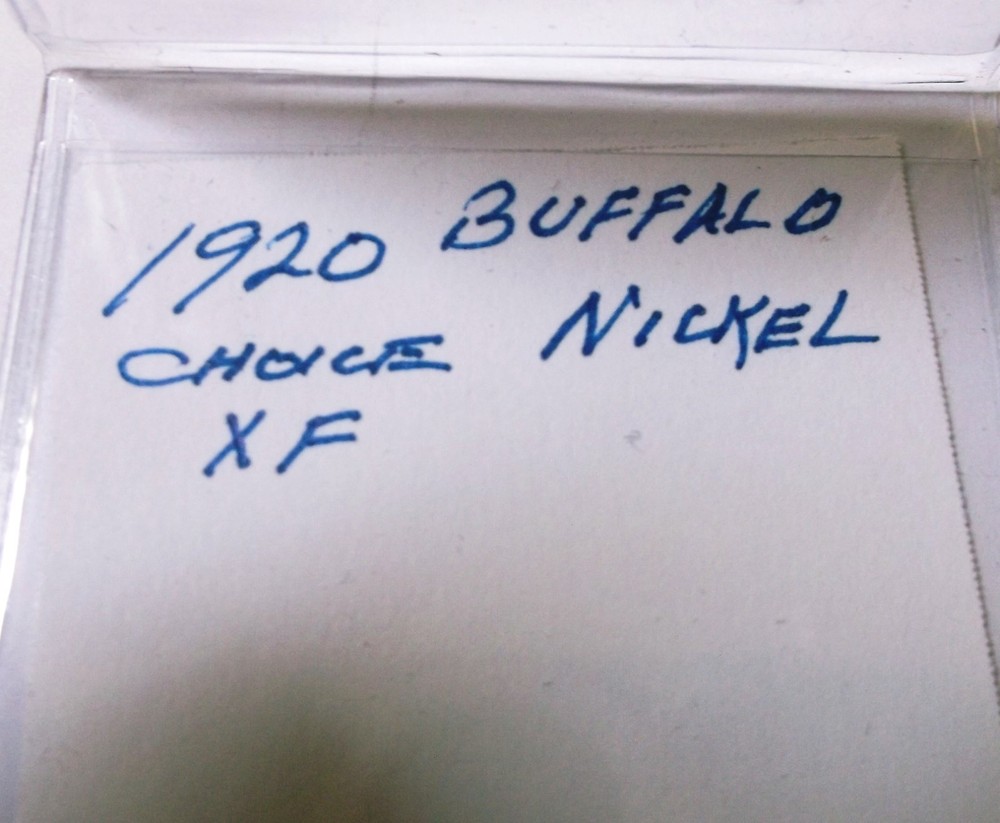 1920 BUFFALO
CHOICE NICKEL
XF